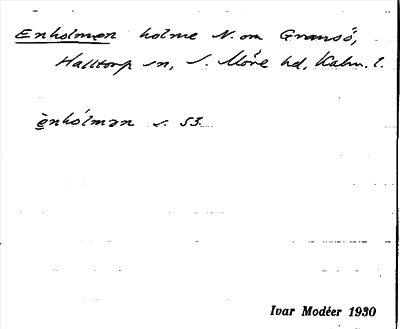 Enholmen holme N. om Gransö,
Halltorp sn, S. Möre hd, Kalm. l.
ènhólmən s. 53.
Ivar Modéer 1930